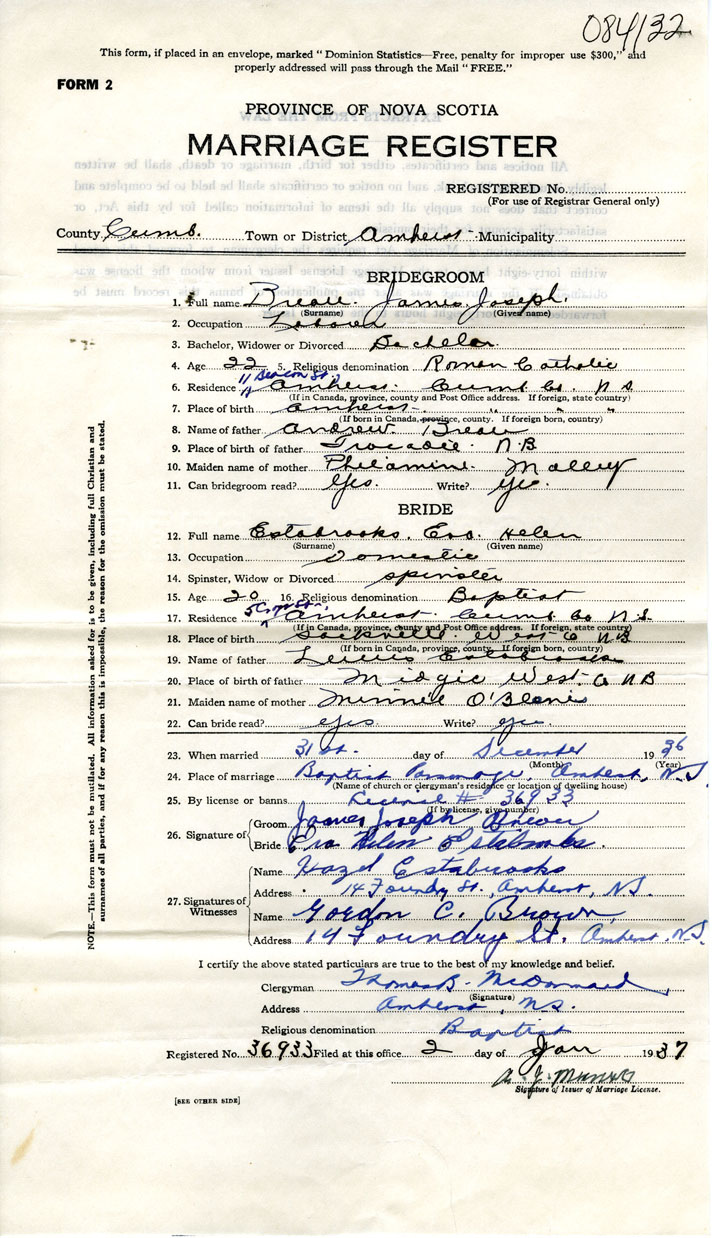 084/32
This form, if placed in an envelope, marked "Dominion Statistics—Free, penalty for improper use $300," and
properly addressed will pass through the Mail "FREE."
FORM 2
PROVINCE OF NOVA SCOTIA
MARRIAGE REGISTER
REGISTERED No.
(For use of Registrar General only)
County Cumb. Town or District Amherst Municipality
BRIDEGROOM
1. Full name Breau. James Joseph.
(Surname) (Given name)
2. Occupation Laborer
3. Bachelor, Widower or Divorced Bachelor.
4. Age 22 5. Religious denomination Roman Catholic
11 Beacon St.
6. Residence Amherst. Cumb Co. N S
(If in Canada, province, county and Post Office address. If foreign, state country)
7. Place of birth Amherst. " " "
(If born in Canada, province, county. If foreign born, country)
8. Name of father Andrew Breau
9. Place of birth of father Tracadie. N.B
10. Maiden name of mother Philamine. Malley
11. Can bridegroom read? Yes. Write? Yes.
BRIDE
12. Full name Estabrooks. Eva Helen
(Surname) (Given name)
13. Occupation Domestic
14. Spinster, Widow or Divorced spinster
15. Age 20 16. Religious denomination Baptist
17. Residence Amherst. Cumb Co N.S.
(If in Canada, province, county and Post Office address. If foreign, state country)
18. Place of birth Sackville. West Co N B
(If born in Canada, province, county. If foreign born, country)
19. Name of father Estabrooks
20. Place of birth of father Midgic West Co N B
21. Maiden name of mother Minnie
22. Can bride read? Yes Write? Yes.
23. When married 31st. day of December 19 36
(Month) (Year)
24. Place of marriage Baptist Parsonage, Amherst, N.S.
(Name of church or clergyman's residence or location of dwelling house)
25. By license or banns License # 36933
(If by license, give number)
26. Signature of Groom James Joseph Breau
Bride Eva Helen Estabrooks.
27. Signatures of Witnesses
Name Hazel Estabrooks
Address 14 Foundry St. Amherst, N.S.
Name Gordon C. Brown,
Address 14 Foundry St. Amherst. N.S.
I certify the above stated particulars are true to the best of my knowledge and belief.
Clergyman Thomas B. McDormand
(Signature)
Address Amherst, N.S.
Religious denomination Baptist
Registered No. 36933 Filed at this office 2 day of Jan 1937
Signature of Issuer of Marriage License.
[SEE OTHER SIDE]
NOTE.—This form must not be mutilated. All information asked for is to be given, including full Christian and
surnames of all parties, and if for any reason this is impossible, the reason for the omission must be stated.